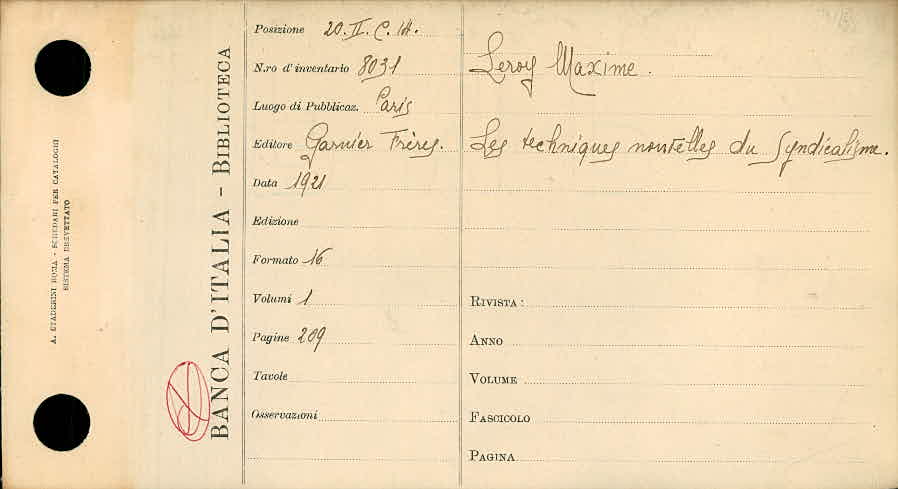 A. STADERINI ROMA - SCHEDARI PER CATALOGHI
SISTEMA BREVETTATO
BANCA D'ITALIA - BIBLIOTECA
Posizione 20. II. C. 14.
N.ro d'inventario 8031
Luogo di Pubblicaz. Paris
Editore Garnier Frères.
Data 1921
Edizione
Formato 16
Volumi 1
Pagine 209
Tavole
Osservazioni
Leroy Maxime.
Les techniques nouvelles du Syndicalisme.
RIVISTA:
ANNO
VOLUME
FASCICOLO
PAGINA